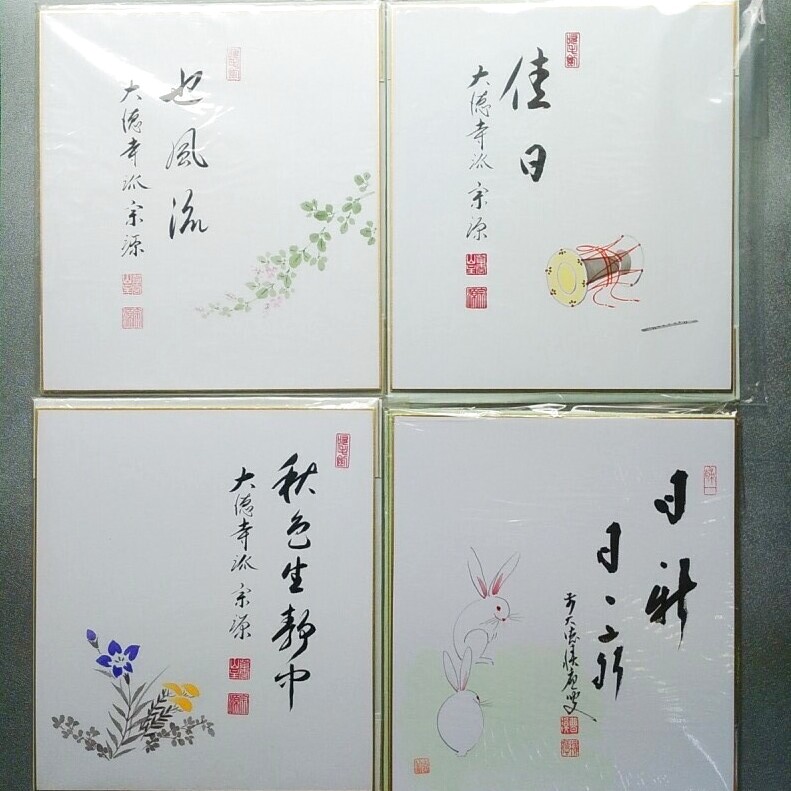 也風流
大徳寺派 宗源
佳日
大徳寺派 宗源
秋色生静中
大徳寺派 宗源
日新
日々新
前大徳